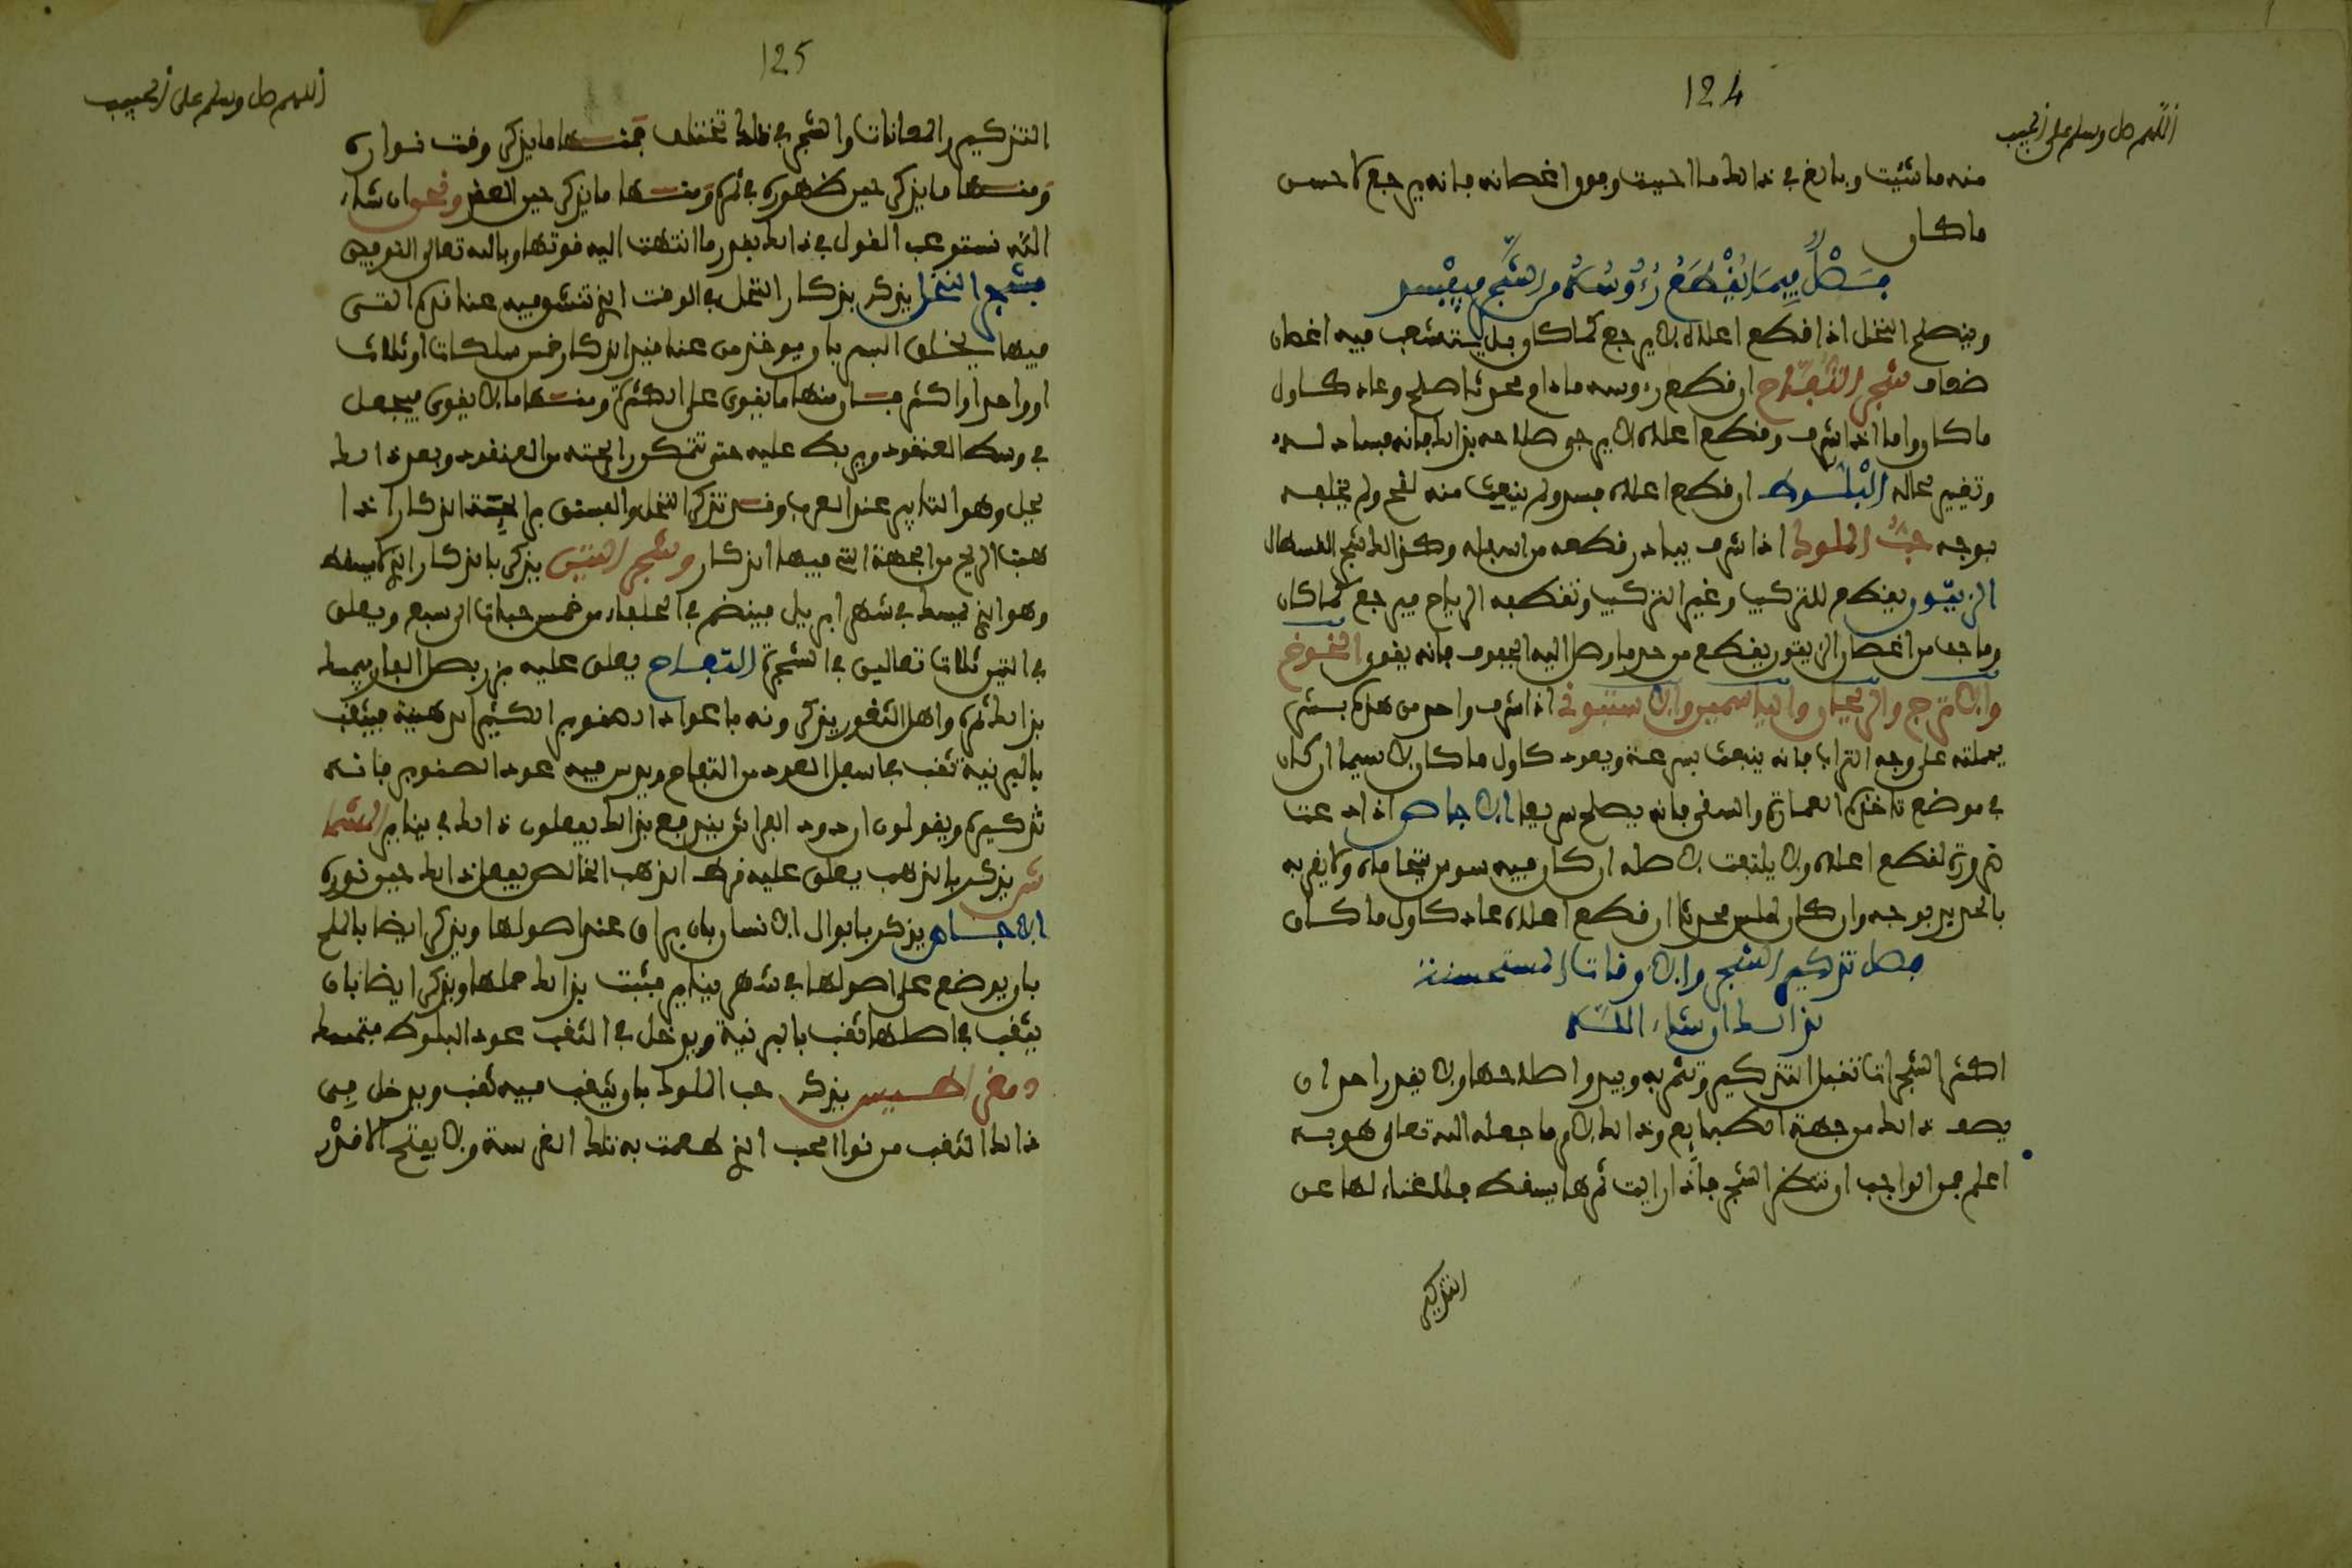 124
اللهم صل وسلم على الحبيب
منه ما شئت وبالغ في ذلك ما احببت وفوق اغصانه فانه يرجع لاحسن
ما كان
فصل فيما يقطع رءوسه من الشجر فيفسد
ويصلح النخل اذا قطع اعلاه لا يرجع كما كان بل يتشعب فيه اغصان
ضعاف شجر التفاح ان قطع رءوسه مادام محوثا صلح وعاد كاول
ما كان واما اذا شرف وقطع اعلاه لا يرجى صلاحه بذلك فانه فساد له
وتغيير لحاله البلوط ان قطع اعلاه فسد ولم ينبعث منه لقح ولم يخلفه
بوجه حب الملوك اذا شرف يبادر قطعه من اسفله وكذلك شجر القسطال
الزيتون يقطع للتركيب وغير التركيب وتقطعه الرياح فيرجع كما كان
وما جف من اغصان الزيتون يقطع من حد ما وصل اليه الجفوف فانه يقوى الخوخ
والاترج والريحان والياسمين والاستبوتي اذا شرف واحد من هذه بستر
يحملته على وجه التراب فانه ينبعث بسرعة ويعود كاول ما كان لا سيما ان كان
في موضع تاخذه العمارة والسقي فانه يصلح سريعا الاجاص اذا دعت
ضرورة لقطع اعلاه ولا يلتفت لاصله ان كان فيه سوس يتحاماه ولا يقربه
بالحديد بوجه وان كان املس محدثا ان قطع اعلاه عاد كاول ما كان
فصل تذكير الشجر والاوقات المستحسنة
لذلك ان شاء الله
اكثر الشجرات تقبل التذكير وتثمر به ويبدوا صلاحها ولا يقدر احد ان
يصف ذلك من جهة الطبايع وذلك لامر ما جعله الله تعالى هو به
اعلم فمن الواجب ان تنظر الشجر فاذا رايت ثمرها يسقط فلا غناء لها عن
التذكير
125
اللهم صل وسلم على الحبيب
التذكير والعانات والشجر في ذلك تختلف فمنها ما يذكر وقت نواره
ومنها ما يذكر حين ظهوره في ثمره ومنها ما يذكر حين العقد ونحن ان شاء
الله نستوعب القول في ذلك بقدر ما انتهت اليه قوتها وبالله تعالى التوفيق
فشجر النخل يذكر بذكار النخل في الوقت الذي تنشق فيه عنا قده التي
فيها يخلق البسر بان يوخذ من عنا قيد الذكار خمس سلكات او ثلاث
او واحدا او اكثر فان منها ما يقوى على الكثرة ومنها ما لا يقوى فيجعل
في وسط العنقود ويربط عليه حتى تتمكن رايحته من العنقود وبعد ذلك
يحل وهو التابير عند العرب وقد تذكر النخل والفستق برايحة الذكار اذا
هبت الريح من الجهة التي فيها الذكار وشجر التين يذكر بالذكار الذي لا يسقط
وهو الذي يسقط في شهر ابريل فينظم في الحلفاء من خمس حبات الى سبع ويعلق
في التين ثلاث تعاليق في الشجرة التفاح يعلق عليه بزر بصل الفار يمسك
بذلك ثمره واهل الثغور يذكرونه باعواد الصنوبر الكثير الدهنية فيثقب
بالبرنية ثقب باسفل العود من التفاح ويدس فيه عود الصنوبر فانه
تذكيره ويقولون ان دود الفرائش يندفع بذلك يفعلون ذلك في يناير المشما
ش يذكر بالذهب يعلق عليه قرط الذهب الخالص يفعل ذلك حين نوره
الاجاص يذكر بابوال الانسان بان يراق عند اصولها ويذكر ايضا بالملح
بان يوضع على اصولها في شهر يناير فيثبت بذلك حملها ويذكر ايضا بان
يثقب في اصلها ثقب بالبرنية ويدخل في الثقب عود البلوط فتمسك
ومغر يذكر حب الملوك بان يثقب فيه ثقب ويدخل في
ذلك الثقب من نوا الحب الذي طعمت به تلك الغرسة ولا يفتح الا قدر